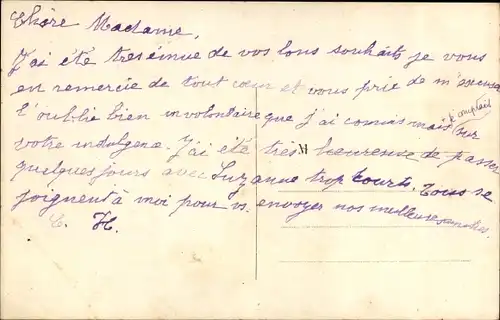 Chère Madame,
J'ai été très émue de vos bons souhaits je vous
en remercie de tout cœur et vous prie de m'excuser
l'oublie bien involontaire que j'ai comis mais sur
je comptais
votre indulgence. J'ai été très heureuse de passer
quelques jours avec Suzanne trop courts. Tous se
joignent à moi pour vs envoyer nos meilleures
C. H.